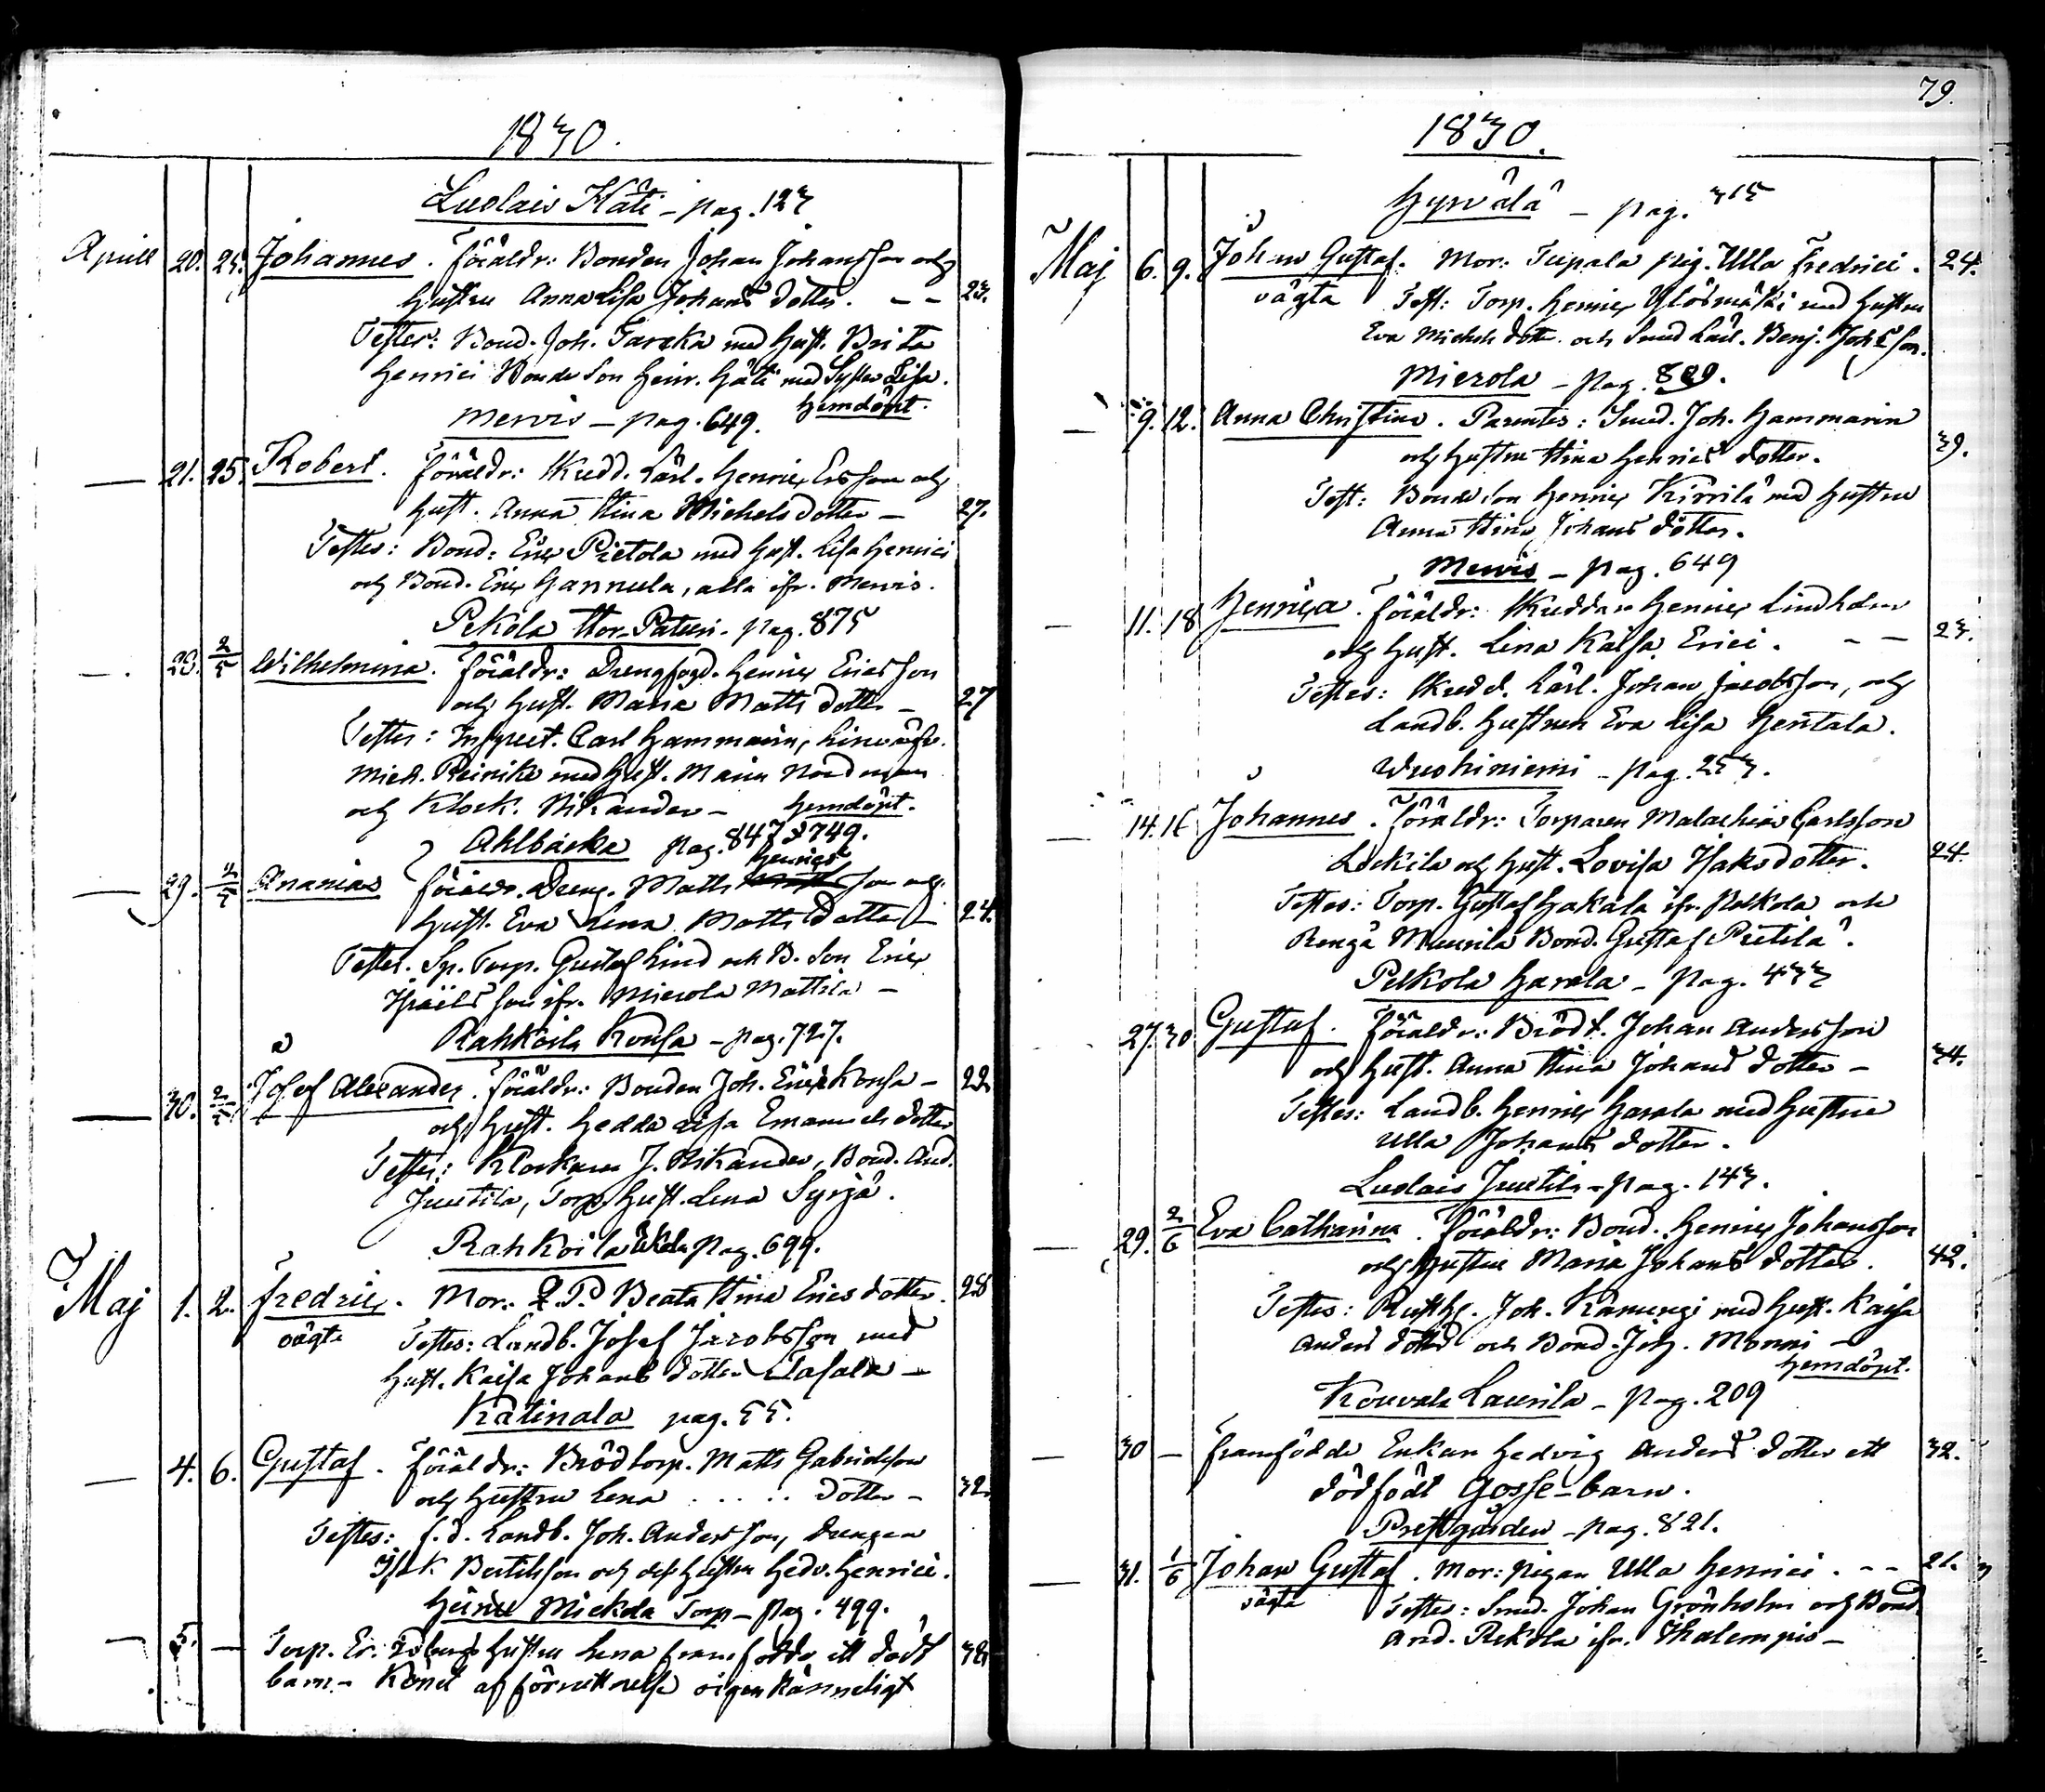 1830.
Luolais Häti - pag. 123
Aprill 20. 25. Johannes. Föräldr: Bonden Johan Johansson och
hustru Anna Lisa Johans dotter. - - 23.
Testes: Bond. Joh. Tareka med hust. Brita
Henrici Bonde Son Heinr. Häti med Syster Lisa.
Hemdöpt.
Mervis - pag. 649.
— 21. 25. Robert. Föräldr: Skredd. Lärl. Henric Ersson och
hust. Anna Stina Michels dotter - 27.
Testes: Bond: Eric Pietola med hust. Lisa Henrici
och Bond. Eric Hannula, alla ifr. Mervis.
Pekola Stor-Paturi. pag. 875
—. 28. 2/5 Wilhelmina. Föräldr: Drengfogd. Henric Ericsson
och hust. Maria Matts dotter - 27
Testes: Inspect. Carl Hammarin,
Mich. Reinike med hust. Maria Nordman
och Klock. Nikander - Hemdöpt.
Ahlbacka pag. 847 & 749.
— 29. 2/5 Ananias Föräldr. Dreng. Matts Henrics son och
hust. Eva Lena Matts Dotter - 24.
Testes. Sp. Torp. Gustaf Lind och B. Son Eric
Israels son ifr. Mierola Mattila -
Rahkoila Konsa - pag. 727.
— 30. 2/5 Josef Alexander. Föräldr: Bonden Joh. Eric Konsa - 22.
och hust. Hedda Lisa Emanuels dotter
Testes: Klockaren J. Nikander, Bond. And.
Juutila, Torp. Hust. Lena Syrjä.
Rahkoila Ukola pag. 699.
Maj 1. 2. Fredric. Mor: Q. P. Beata Stina Erics dotter. 28
oägta Testes: Landb. Josef Jacobsson med
hust. Kaisa Johans dotter Tasala -
Katinala pag. 55.
— 4. 6. Gustaf. Föräldr: Brödtorp. Matts Gabrielsson
och hustru Lena . . . . . dotter - 32.
Testes: f. d. Landb. Joh. Andersson, Drengen
Isak Bertilsson och dess hustru Hedv. Henrici.
Heinu Mickola Torp - pag. 499.
— 5. — Torp. Er. hustru Lena framfödde ett dödt
barn - Könet af förruttnelse oigenkänneligt
79.
1830.
Hyrvälä - pag. 315
Maj 6. 9. Johan Gustaf. Mor: Tupala pig. Ulla Fredrici. 24.
oägta Test: Torp. Henric Ylösmäki med hustru
Eva Michels dotter och Smed Lärl. Benj. Joh. Son.
Mierola - pag. 809.
— 9. 12. Anna Christina. Parentes: Smed. Joh. Hammarin
och hustru Stina Henrics dotter. 39.
Test: Bonde Son Henric Kirrilä med hustru
Anna Stina Johans dotter.
Mervis - pag. 649
— 11. 18 Henrica. Föräldr: Skreddare Henric Lindholm
och hust. Lina Kaisa Erici. - - 23.
Testes: Skredd. Lärl. Johan Jacobsson, och
Landb. hustrun Eva Lisa Hentala.
Wuohiniemi - pag. 253.
— 14. 16 Johannes. Föräldr: Torparen Malachias Carlsson
Lockila och hust. Lovisa Isaks dotter. 24.
Testes: Torp. Gustaf Hakala ifr. Pelkola och
Rengå Muurila Bond. Gustaf Pietilä.
Pelkola Harola - pag. 433
27. 30 Gustaf. Föräldr: Brödt. Johan Andersson
och hust. Anna Stina Johans dotter - 34.
Testes: Landb. Henric Harala med hustru
Ulla Johans dotter.
Luolais Juutila - pag. 143.
— 29. 2/6 Eva Catharina. Föräldr: Bond. Henric Johansson
och hustru Maria Johans dotter. 42.
Testes: Rusth. Joh. Kanungi med hust. Kaisa
Anders dotter och Bond. Joh. Monni -
Hemdöpt.
Kouvala Laurila - pag. 209
— 30 — framfödde Enkan Hedvig Anders dotter ett 32.
dödfödt Gosse-barn.
Prestgården - pag. 821.
— 31. 1/6 Johan Gustaf. Mor: Pigan Ulla Henrici. - - 21.
oägta Testes: Smed. Johan Grönholm och Bond.
And. Pekola ifr. Skalempis -